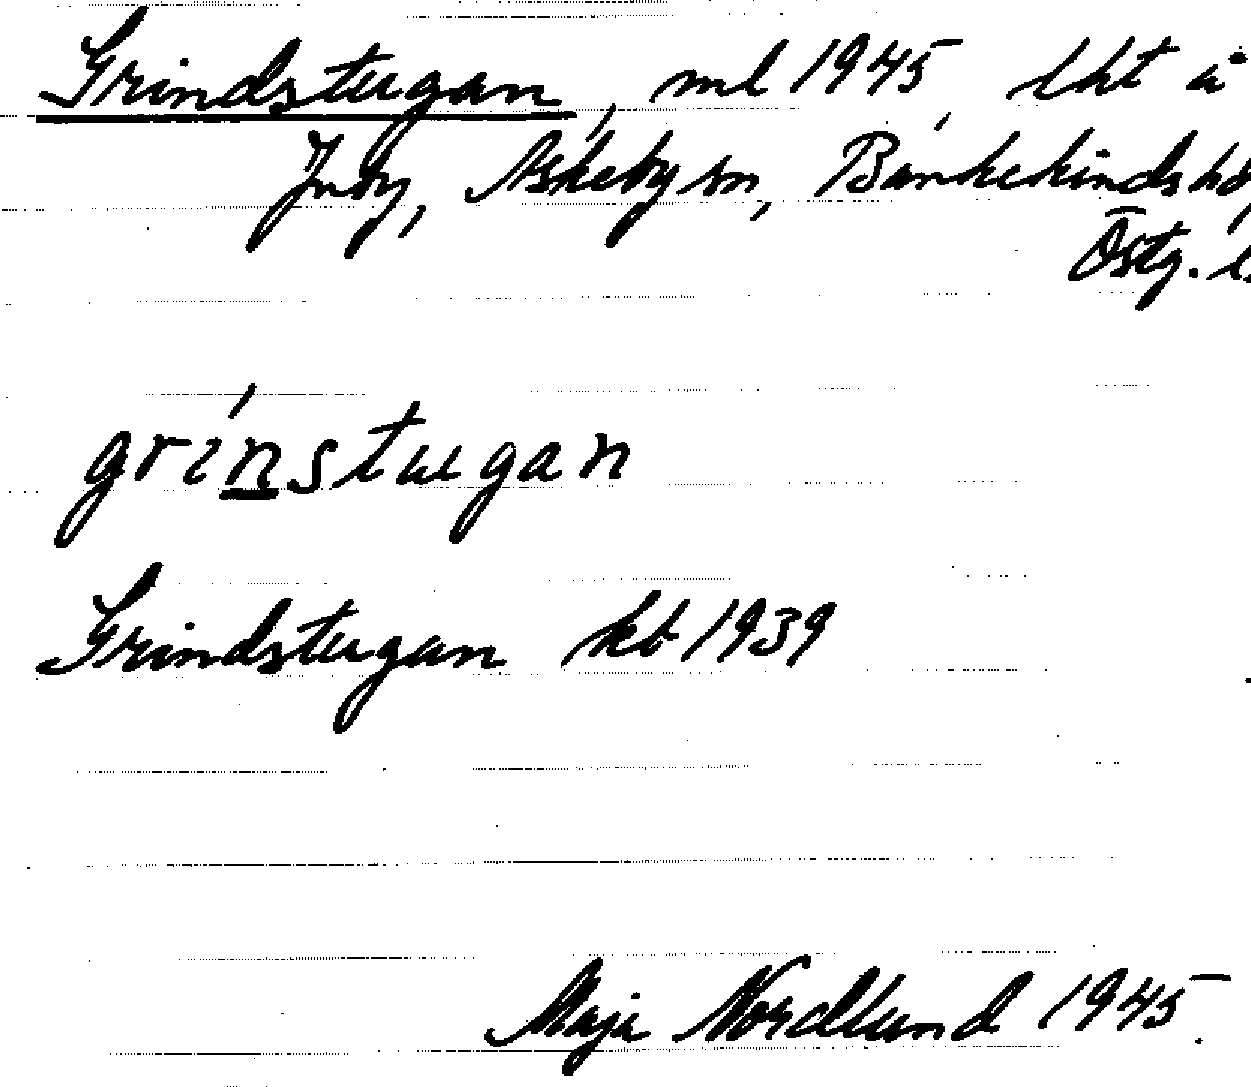 Grindstugan, ml 1945, lht å
Inby, Askeby sn, Bankekinds hd,
Östg. l.
grínstugan
Grindstugan kb 1939
Maja Nordlund 1945.